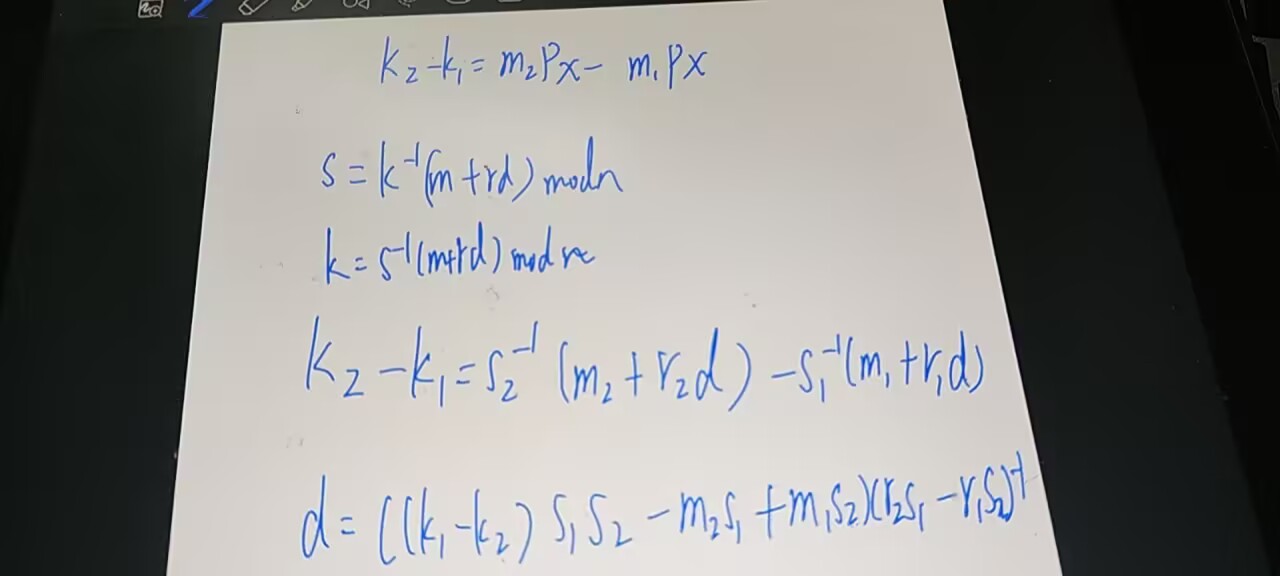 k₂-k₁=m₂Px- m₁Px
s=k⁻¹(m+rd) mod n
k=s⁻¹(m+rd) mod n
k₂-k₁=s₂⁻¹(m₂+r₂d)-s₁⁻¹(m₁+r₁d)
d=((k₁-k₂)s₁s₂-m₂s₁+m₁s₂)(r₂s₁-r₁s₂)⁻¹